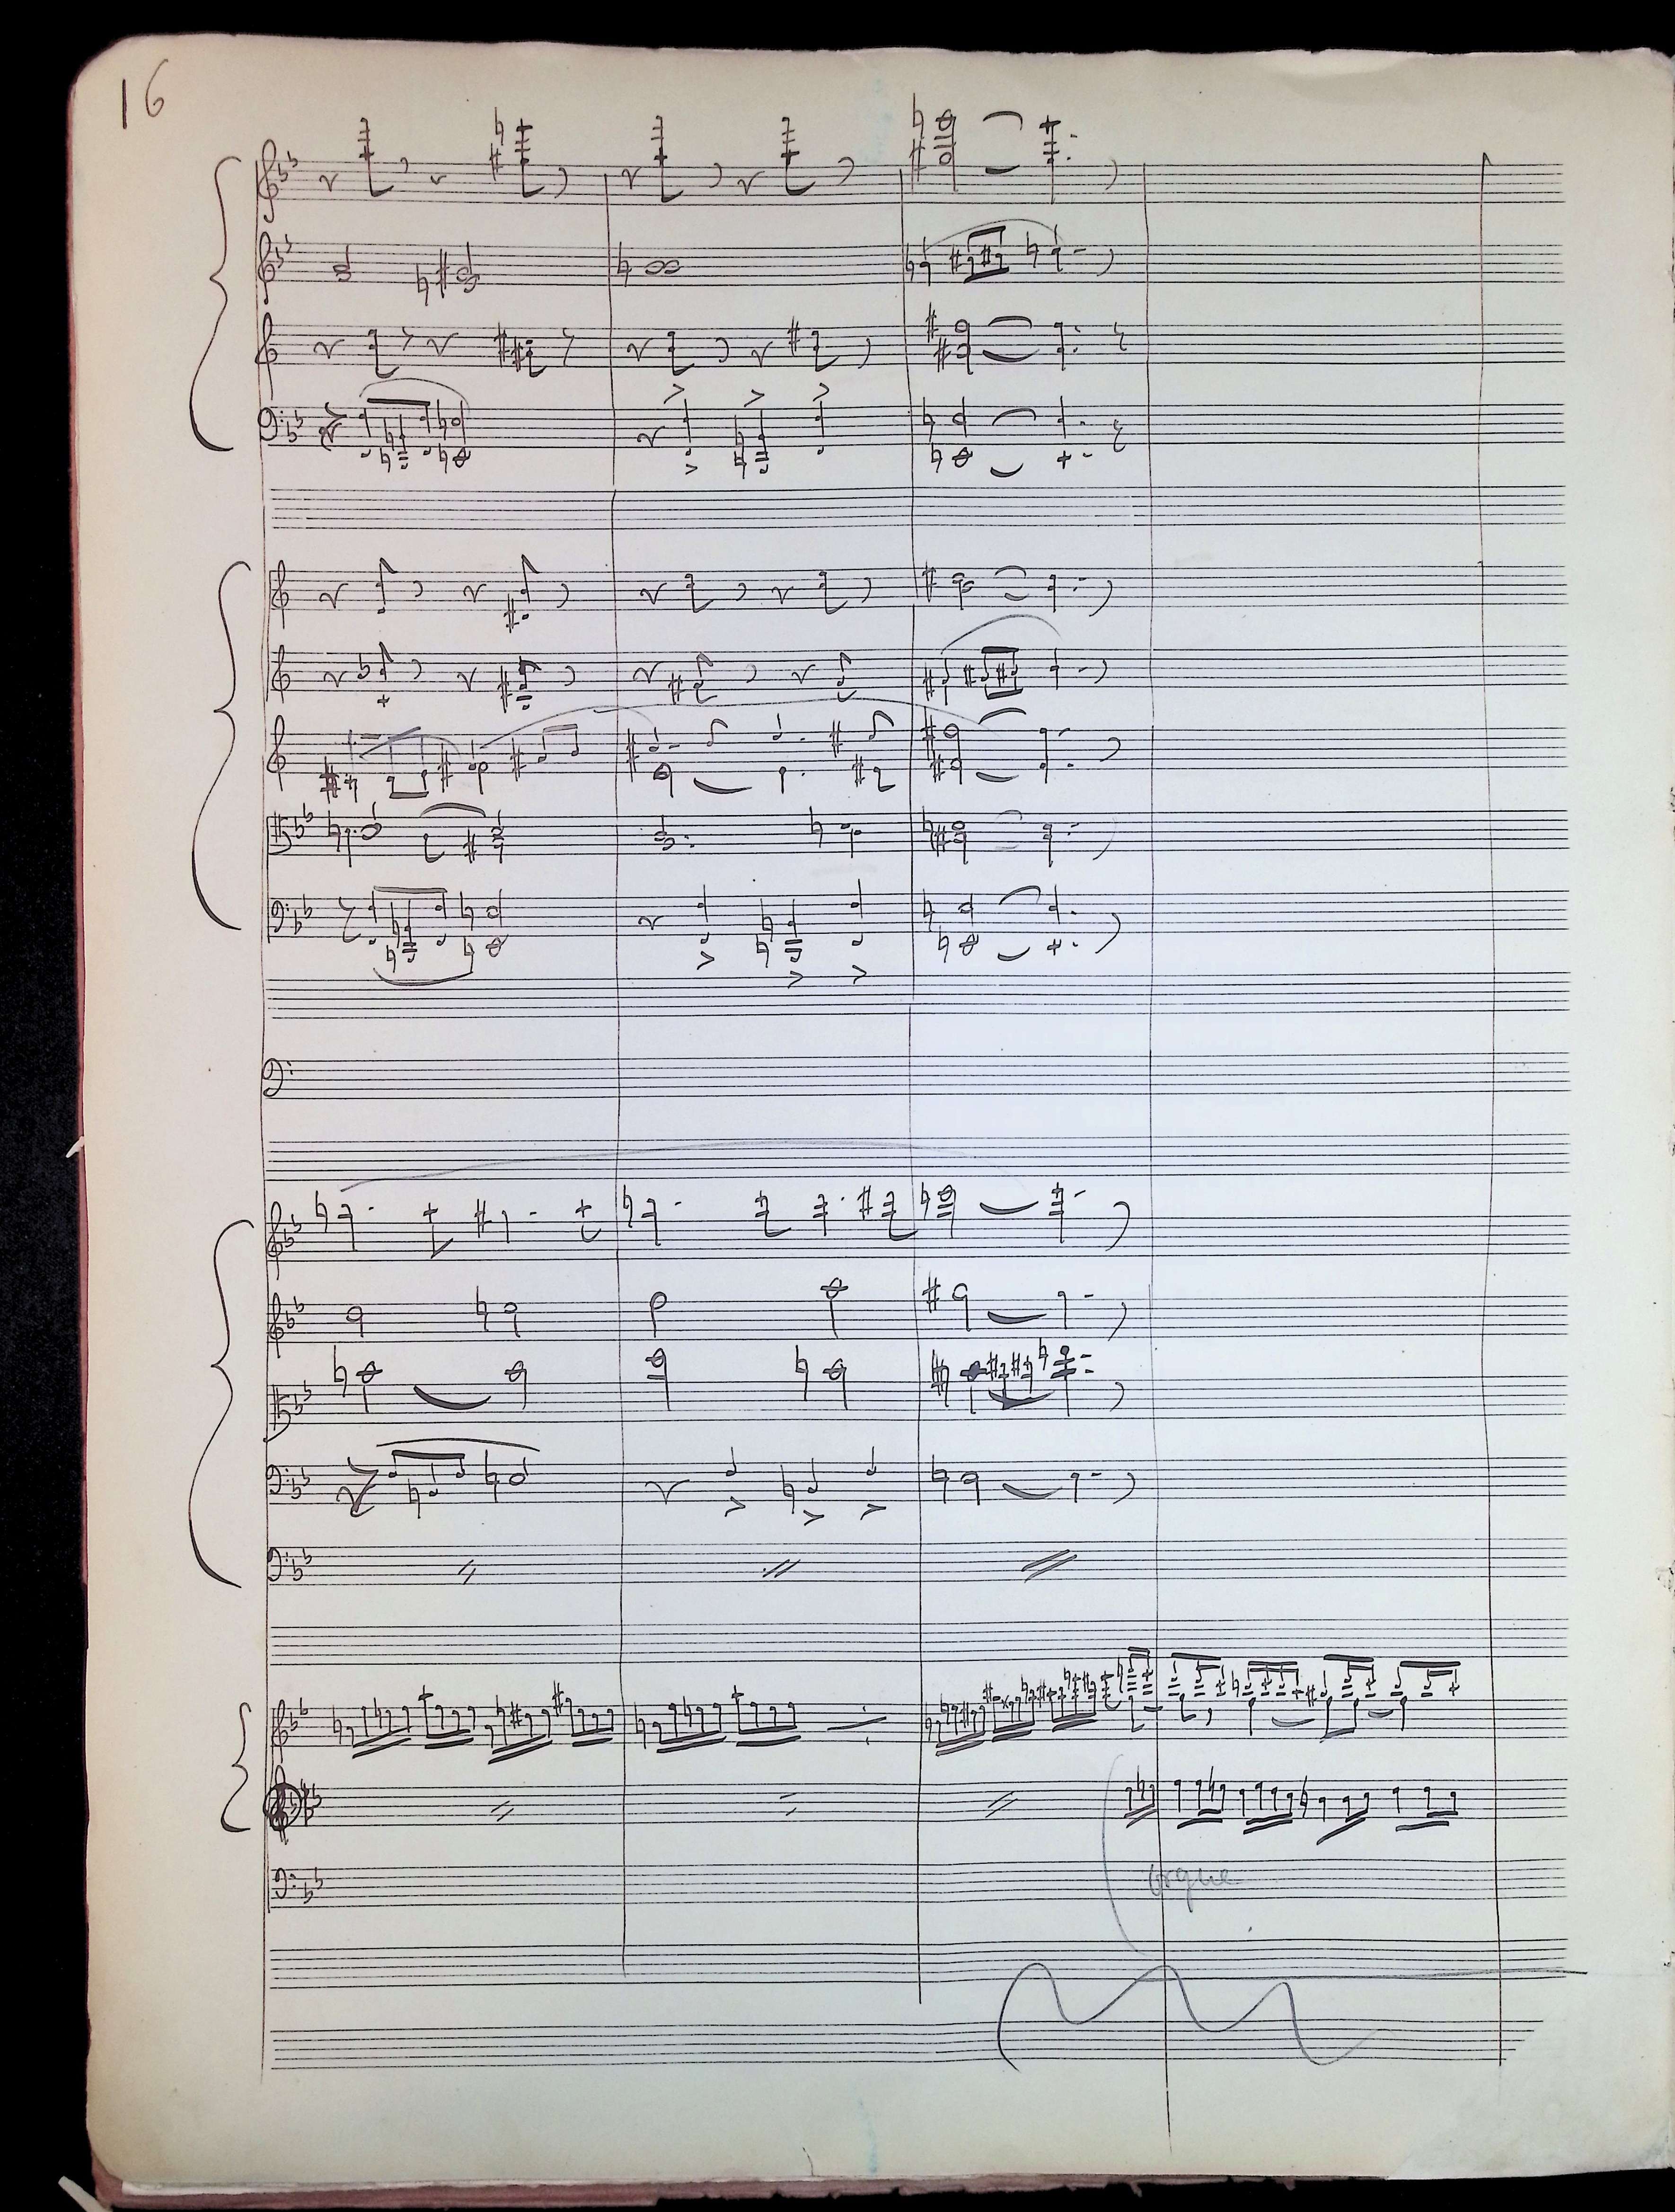 16
orgue